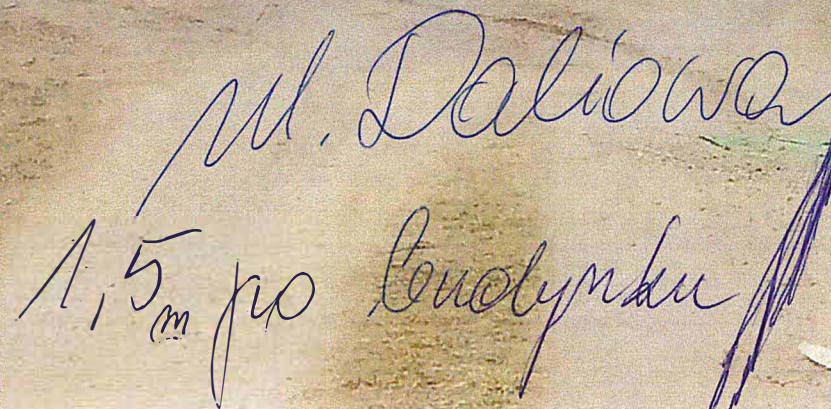 ul. Daliowa
1,5 m po budynku